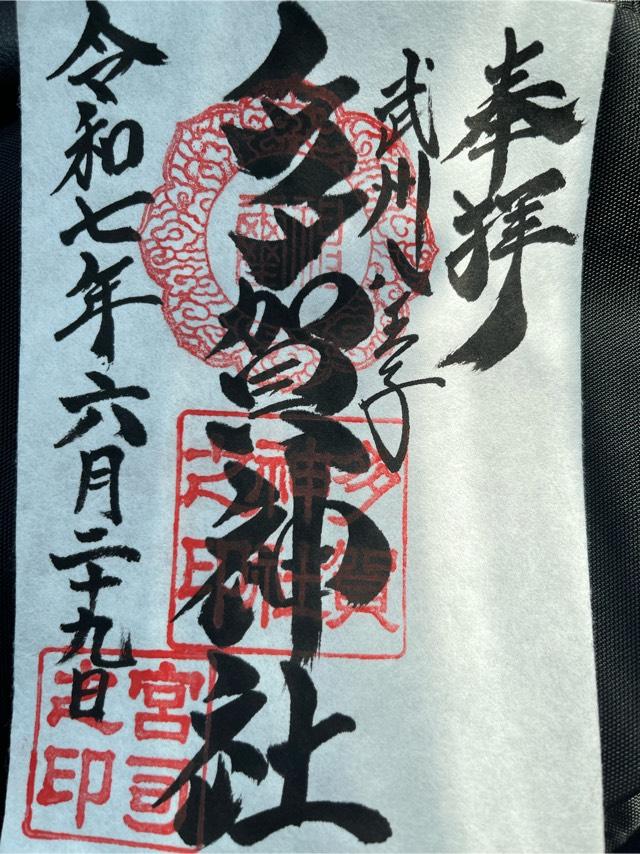 奉拝
武州八王子
多賀神社
令和七年六月二十九日
多賀
神社
之印
宮司
之印